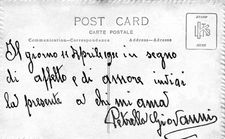 POST CARD
CARTE POSTALE
Communication—Correspondance
Address—Adresse
Il giorno 11 Aprile 1920 in segno
di affetto e di amore invia
la presente a chi mi ama
Petrollo Giovanni